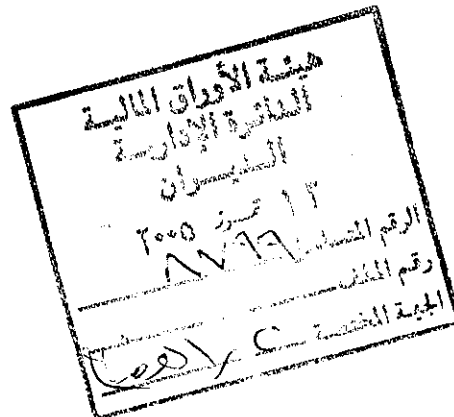 هيئة الأوراق المالية
الدائرة الإدارية
الديوان
تموز ٢٠٠٥
الرقم المتسلسل ٨٧٦٦
رقم الملف
الجهة المختصة